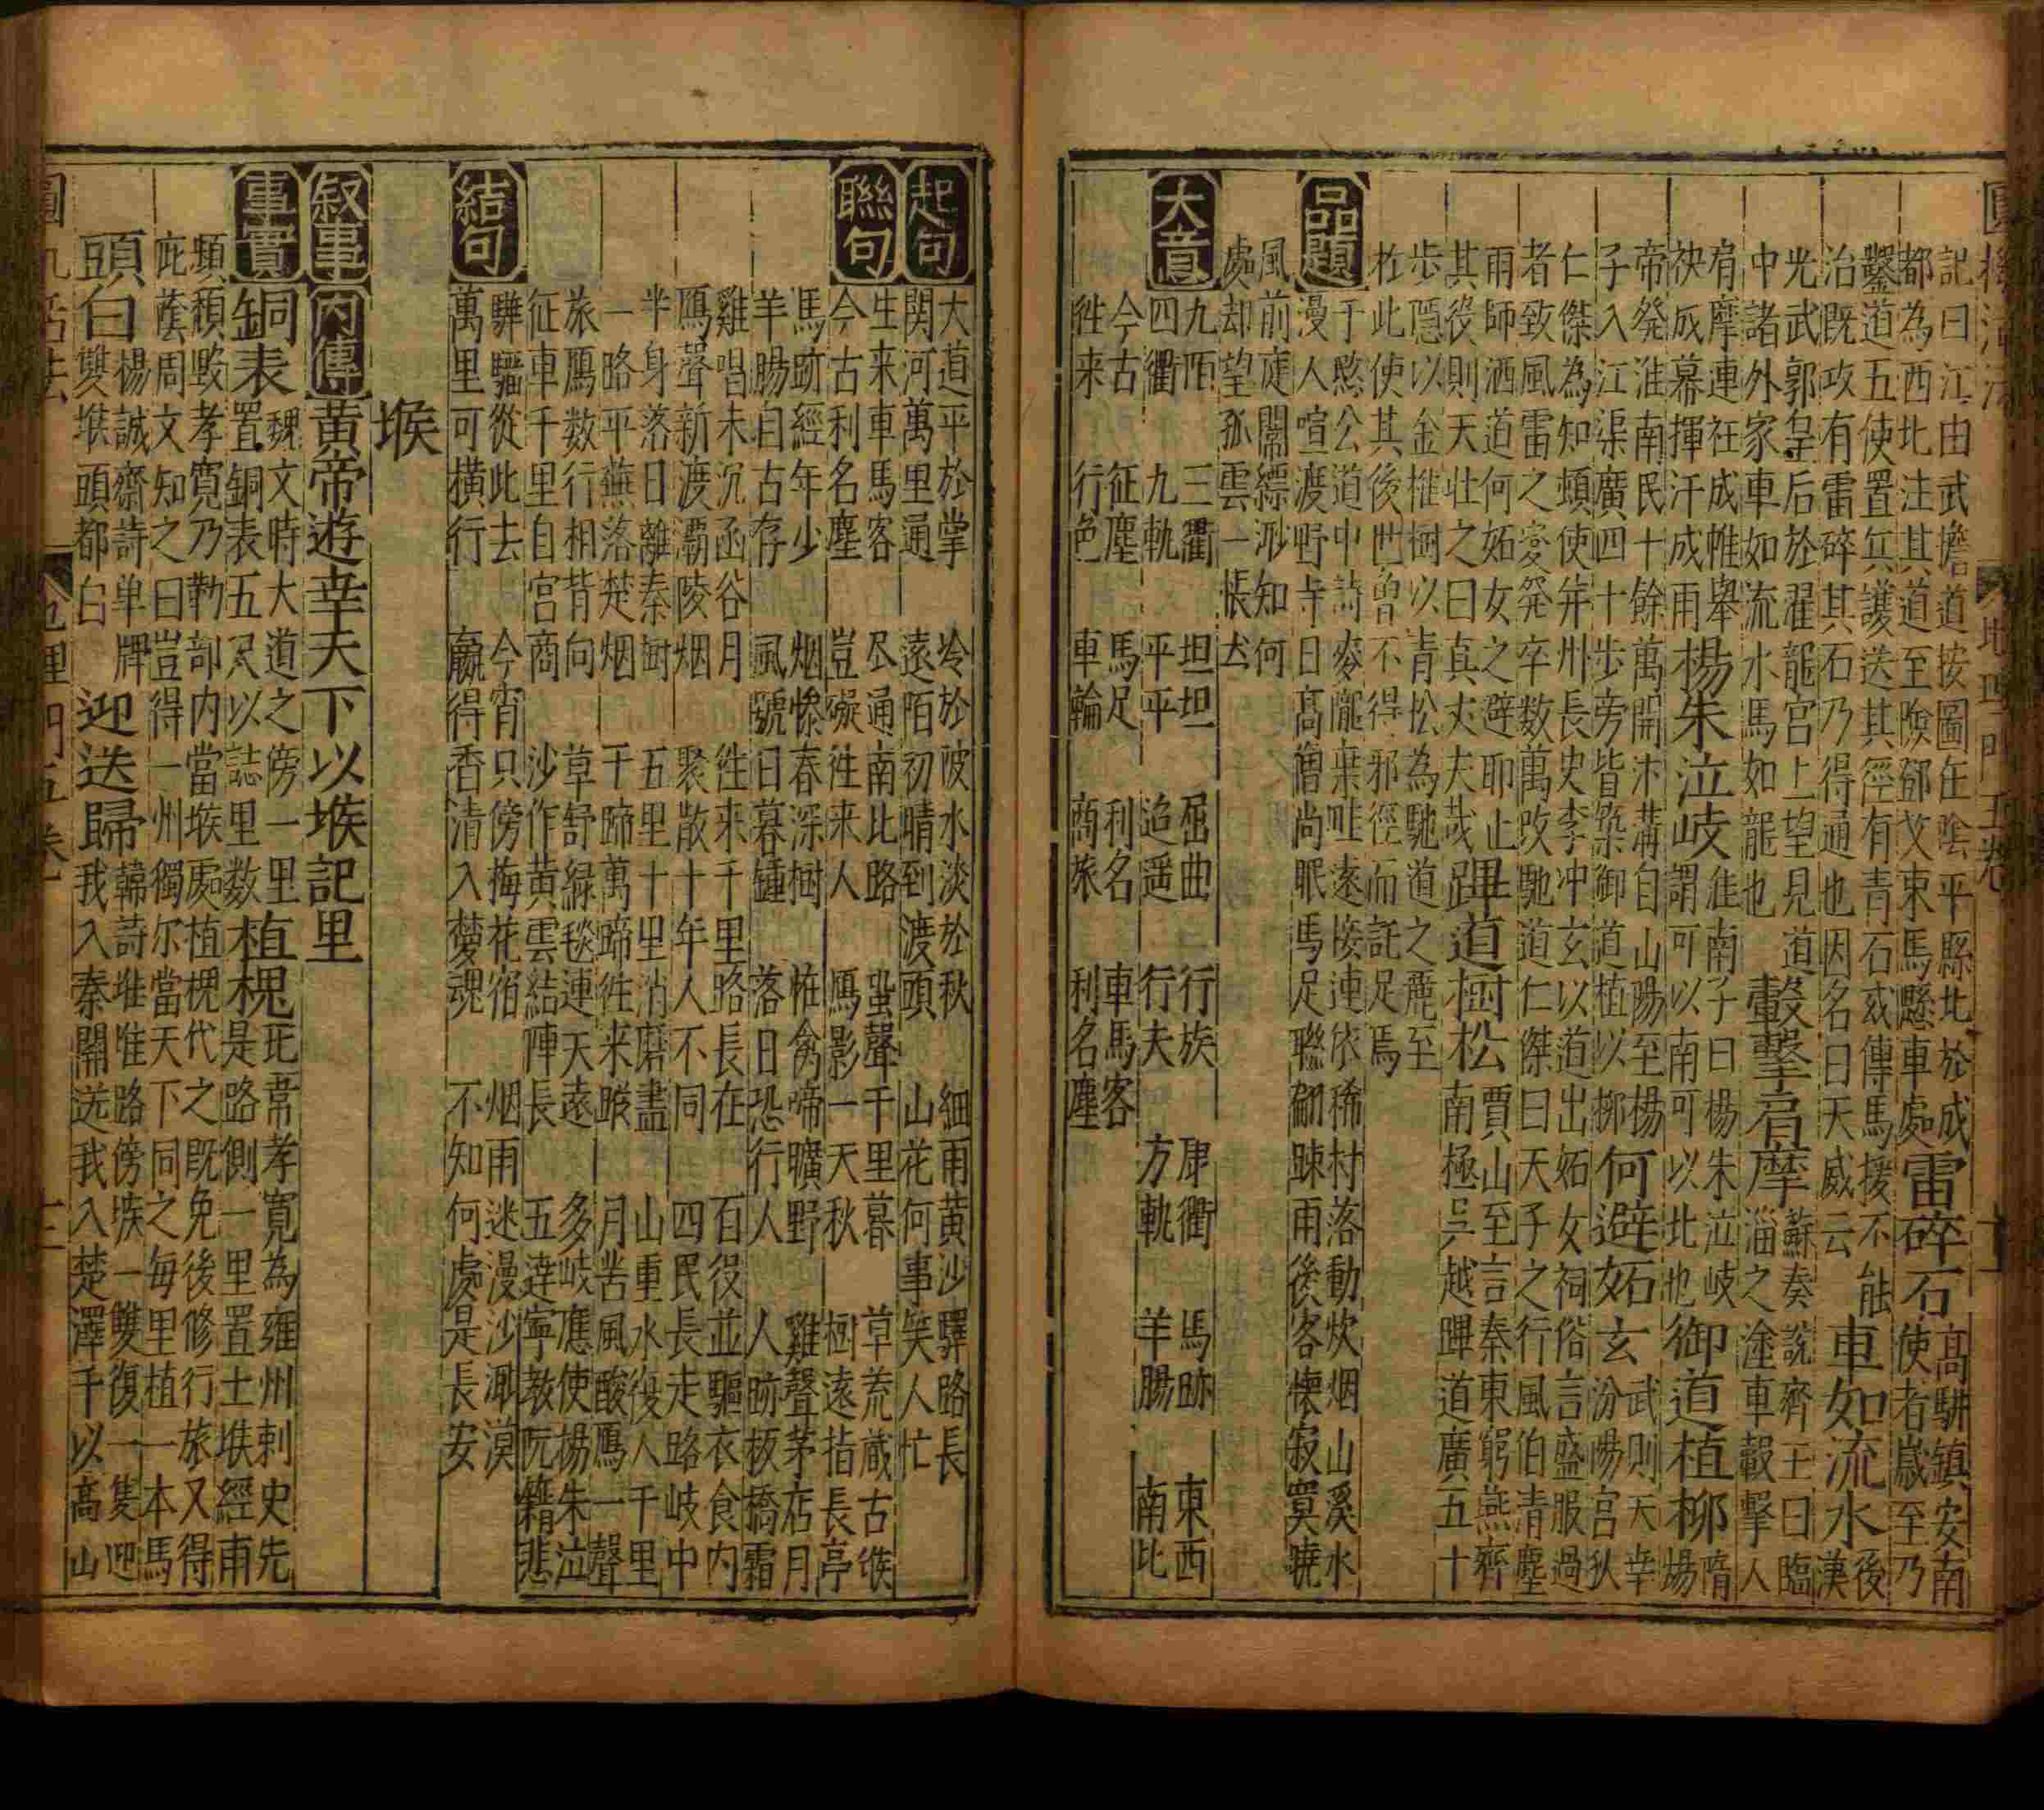 記曰江由武擔道按圖在陰平縣北於成
都為西北注其道至險鄧艾束馬懸車處
雷碎石
高駢鎮安南
使者歲至乃
鑿道五使置兵護送其徑有青石或傳馬援不能
治既攻有雷碎其石乃得通也因名曰天威云
車如流水
後
漢
光武郭皇后於濯龍宮上望見道
中諸外家車如流水馬如龍也
轂擊肩摩
蘇秦說齊王曰臨
淄之塗車轂擊人
肩摩連衽成帷舉
袂成幕揮汗成雨
楊朱泣岐
淮南子曰楊朱泣岐
謂可以南可以北也
御道植柳
隋
煬
帝発淮南民十餘萬開沭溝自山陽至揚
子入江渠廣四十步旁皆築御道植以柳
何避妬玄
武則天幸
汾陽宮狄
仁傑為知頓使并州長史李冲玄以道出妬女祠俗言盛服過
者致風雷之變発卒数萬改馳道仁傑曰天子之行風伯清塵
雨師洒道何妬女之避耶止
其役則天壮之曰真丈夫哉
蹕道樹松
賈山至言秦東窮燕齊
南極吴越蹕道廣五十
步隱以金椎樹以青松為馳道之麗至
於此使其後世曾不得邪徑而託足焉
品題
于愍公道中詩麥隴桒畦遠接連依稀村落動炊烟山溪水
漫人喧渡野寺日髙僧尚眠馬足聯翩踈雨後客懷寂寞曉
風前庭闈縹渺知何
處却望孤雲一悵然
大意
九陌 三衢 坦坦 屈曲 行族 康衢 馬跡 東西
四衢 九軌 平平 迢遥 行夫 方軌 羊腸 南北
今古 征塵 馬足 利名 車馬客
往来 行色 車輪 商旅 利名塵
起句
大道平於掌 冷於陂水淡於秋 細雨黄沙驛路長
関河萬里通 遠陌初晴到渡頭 山花何事笑人忙
聯句
生来車馬客 尽通南北路 蛩聲千里暮 草荒蔵古堠
今古利名塵 豈礙往来人 鴈影一天秋 樹遠指長亭
馬跡經年少 烟惨春深樹 帷禽啼曠野 雞聲茅店月
羊腸自古存 風號日暮鐘 落日恐行人 人跡板橋霜
雞唱未沉函谷月 往来千里路長在 百役並驅衣食内
鴈聲新渡灞陵烟 聚散十年人不同 四民長走路岐中
半身落日離秦樹 五里十里消磨盡 山重水復人千里
一路平蕪落楚烟 千蹄萬蹄往来蹤 月苦風酸鴈一聲
旅鴈数行相背向 草舒緑毯連天遠 多岐應使楊朱泣
征車千里自宫商 沙作黄雲結陣長 五逹寧教阮籍悲
結句
驊騮從此去 今宵只傍梅花宿 烟雨迷漫沙漠
萬里可横行 贏得香清入夢魂 不知何處是長安
堠
叙事
内傳
黄帝遊幸天下以堠記里
事實
銅表
魏文時大道之傍一里
置銅表五尺以誌里数
植槐
韋孝寬為雍州刺史先
是路側一里置土堠經雨
頽毁孝寬乃勅部内當堠處植槐代之既免後修行旅又得
庇蔭周文知之曰豈得一州獨尔當天下同之每里植一本馬
頭白
楊誠齋詩单牌
雙堠頭都白
迎送歸
韓詩堆堆路傍堠一雙復一隻迎
我入秦關送我入楚澤千以髙山